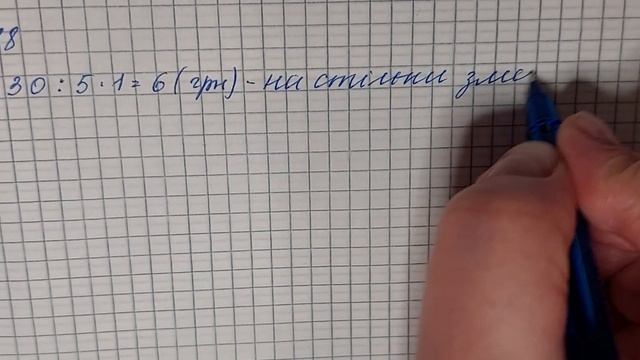 8
30 : 5 · 1 = 6 (грн) - на стільки зме